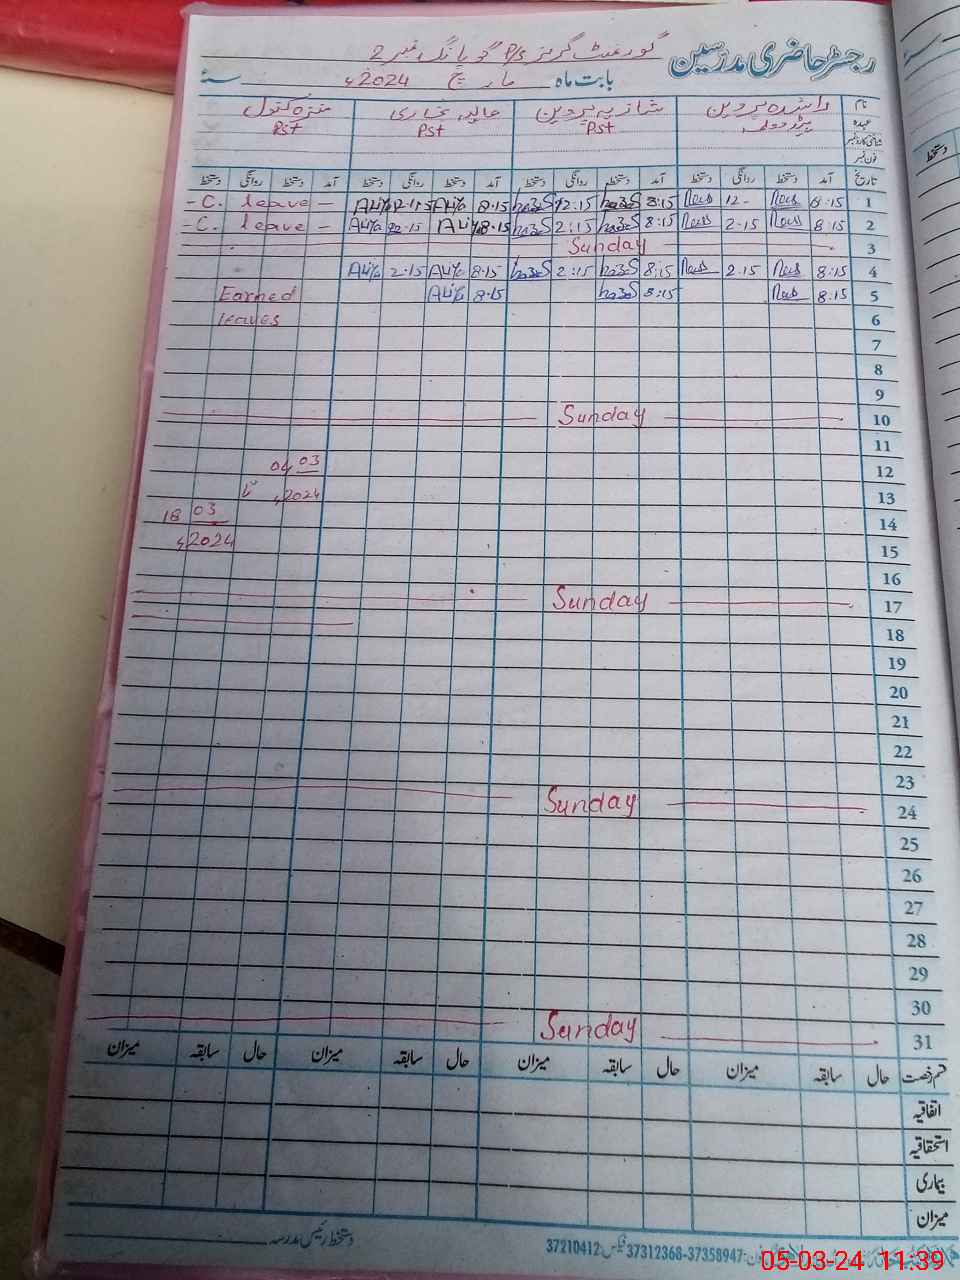 رجسٹر حاضری مدرسین گورنمنٹ گرلز P/s گوپانگ نمبر 2
بابت ماہ مارچ 2024ء سنہ
نام راشدہ پروین شازیہ پروین عالیہ بخاری منزہ کنول
عہدہ Pst Pst Pst
شناختی کارڈ نمبر
فون نمبر
تاریخ آمد دستخط روانگی دستخط آمد دستخط روانگی دستخط آمد دستخط روانگی دستخط آمد دستخط روانگی دستخط
1 8:15 12- 8:15 12.15 8.15 Aliya 12.15 Aliya - C. leave -
2 8:15 2.15 8:15 2:15 8.15 Aliya 2.15 Aliya - C. leave -
3 Sunday
4 8:15 2.15 8:15 2:15 8.15 Aliya 2.15 Aliya
5 8.15 8:15 8.15 Aliya Earned
6 leaves
7
8
9
10 Sunday
11
12 04 03
13 2024ء تا
14 18 03
15 2024ء
16
17 Sunday
18
19
20
21
22
23
24 Sunday
25
26
27
28
29
30
31 Sunday
قسم رخصت حال سابقہ میزان حال سابقہ میزان حال سابقہ میزان حال سابقہ میزان
اتفاقیہ
استحقاقیہ
بیماری
میزان
دستخط رئیس مدرسہ
فون: 37358947-37312368 فیکس: 37210412
05-03-24 11:39